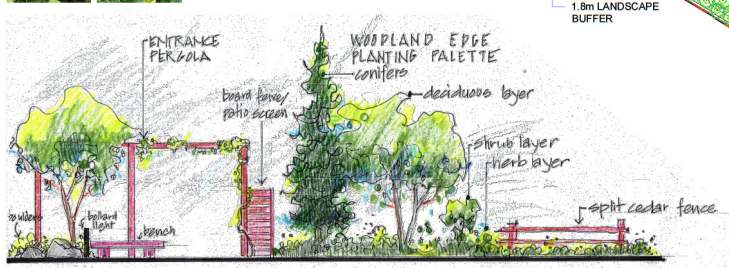 1.8m LANDSCAPE
BUFFER
ENTRANCE
PERGOLA
WOODLAND EDGE
PLANTING PALETTE
conifers
board fence/
patio screen
deciduous layer
shrub layer
herb layer
split cedar fence
boulders
bollard
light
bench